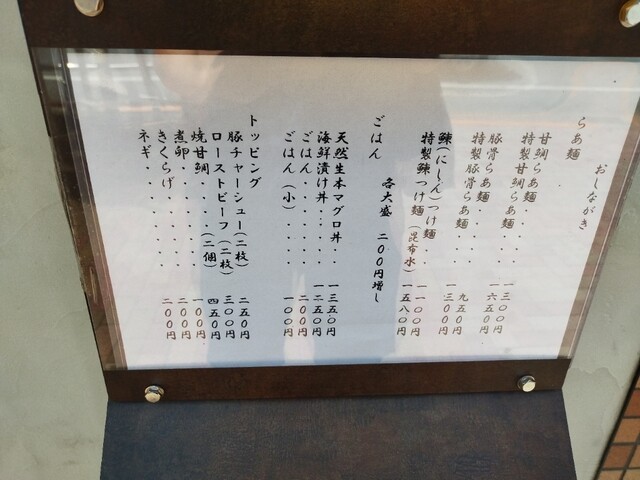 おしながき
らあ麺
甘鯛らあ麺・・・一三〇〇円
特製甘鯛らあ麺・・一六五〇円
豚骨らあ麺・・・・九五〇円
特製豚骨らあ麺・・一三〇〇円
鰊(にしん)つけ麺・・一一〇〇円
特製鰊つけ麺(昆布水)一五八〇円
各大盛 二〇〇円増し
ごはん
天然生本マグロ丼・・一三五〇円
海鮮漬け丼・・・・一二五〇円
ごはん・・・・・・二〇〇円
ごはん(小)・・・・一〇〇円
トッピング
豚チャーシュー(二枚)二五〇円
ローストビーフ(二枚)三〇〇円
焼甘鯛・・・・(二個)四五〇円
煮卵・・・・・・一〇〇円
きくらげ・・・・・二〇〇円
ネギ・・・・・・・二〇〇円